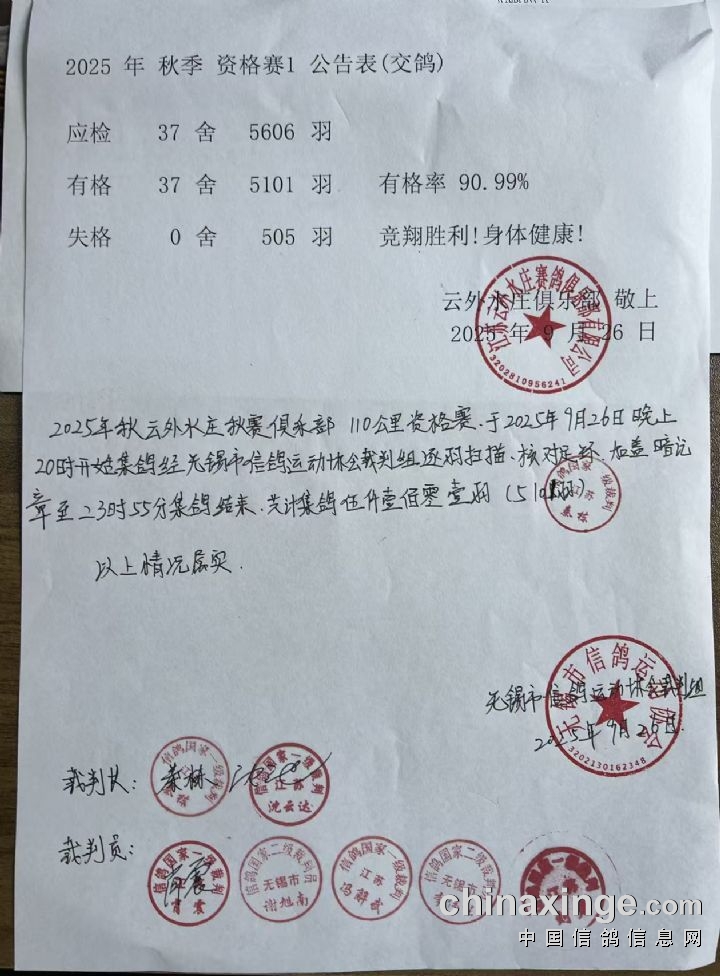 2025 年 秋季 资格赛1 公告表(交鸽)
应检 37 舍 5606 羽
有格 37 舍 5101 羽 有格率 90.99%
失格 0 舍 505 羽 竞翔胜利!身体健康!
云外水庄俱乐部 敬上
2025 年 9 月 26 日
江苏云外水庄赛鸽俱乐部有限公司
3202810956241
2025年秋云外水庄秋赛俱乐部 110公里资格赤、于2025年9月26日晚上
20时开始集鸽经无锡市信鸽运动协会裁判组逐羽扫描、核对足环、加盖暗记
章至23时55分集鸽结束、共计集鸽伍仟壹佰零壹羽(5101羽)
信鸽国家一级裁判
以上情况属实.
无锡市信鸽运动协会裁判组
2025年9月26日.
无锡市信鸽运动协会
3202130162348
裁判长:
信鸽国家一级裁判
江苏
信鸽国家一级裁判
江苏
沈云达
裁判员:
信鸽国家一级裁判
肖震
信鸽国家二级裁判员
无锡市
谢旭南
信鸽国家一级裁判
江苏
信鸽国家二级裁判
无锡市
chinaxinge.com
中国信鸽信息网